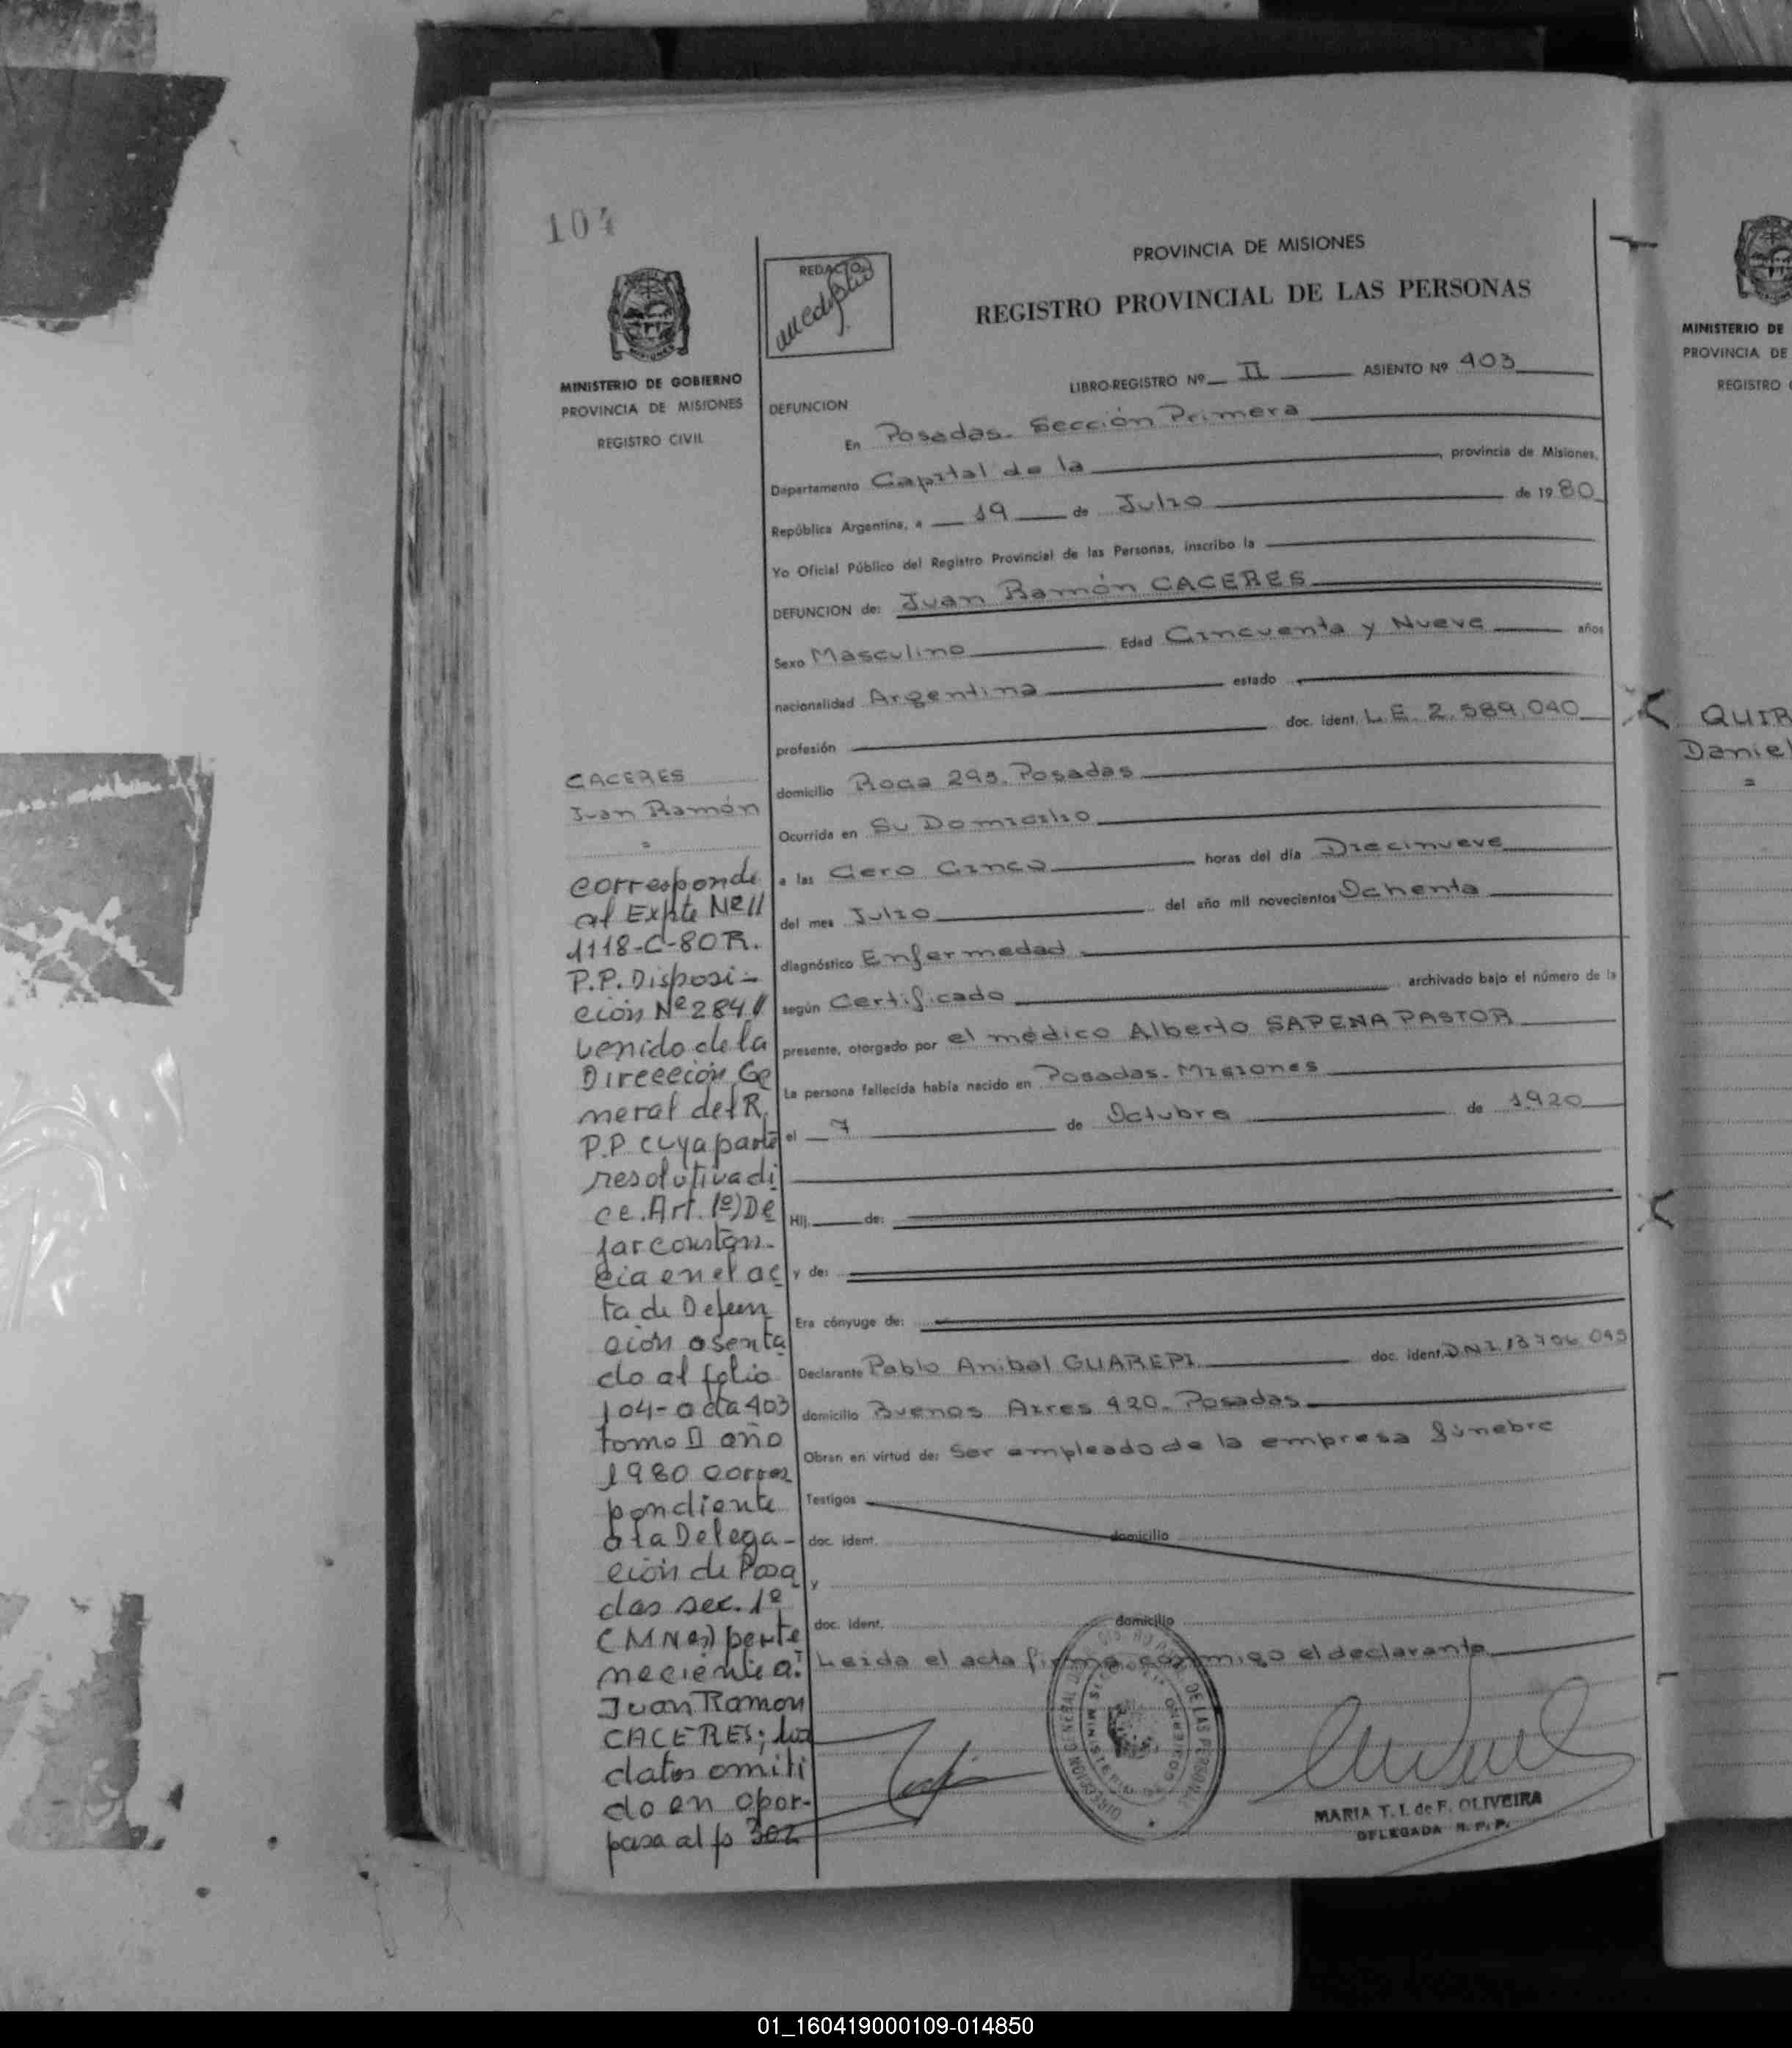 104
MINISTERIO DE GOBIERNO
PROVINCIA DE MISIONES
REGISTRO CIVIL
REDACTO
PROVINCIA DE MISIONES
REGISTRO PROVINCIAL DE LAS PERSONAS
LIBRO-REGISTRO Nº II ASIENTO Nº 403
DEFUNCION
En Posadas. Sección Primera
Departamento Capital de la, provincia de Misiones,
República Argentina, a 19 de Julio de 1980
Yo Oficial Público del Registro Provincial de las Personas, inscribo la
DEFUNCION de: Juan Ramón CACERES
Sexo Masculino Edad Cincuenta y Nueve años
nacionalidad Argentina estado
profesión doc. ident. L.E. 2.589.040
domicilio Roca 295. Posadas
Ocurrida en Su Domicilio
a las Cero Cinco horas del día Diecinueve
del mes Julio del año mil novecientos Ochenta
diagnóstico Enfermedad
según Certificado archivado bajo el número de la
presente, otorgado por el médico Alberto SAPENA PASTOR
La persona fallecida había nacido en Posadas. Misiones
el 7 de Octubre de 1920
Hij de:
y de:
Era cónyuge de:
Declarante Pablo Anibal GUAREPI doc. ident. DNI. 13706.095
domicilio Buenos Aires 420. Posadas
Obran en virtud de: Ser empleado de la empresa fúnebre
Testigos
doc. ident. domicilio
y
doc. ident. domicilio
Leida el acta firma conmigo el declarante
MARIA T. I. de F. OLIVEIRA
DELEGADA R. P. P.
CACERES
Juan Ramón
corresponde
al Expte Nº 11
1118-C-80 R.
P.P. Disposi-
ción Nº 284 //
venido de la
Dirección Ge
neral del R.
P.P cuya parte
resolutiva di
ce. Art. 1º) De
jar constan-
cia en el ac
ta de Defun
ción asenta
do al folio
104- acta 403
tomo II año
1980 corres
pondiente
a la Delega-
ción de Posa
das sec. 1º
(MNes) perte
neciente a:
Juan Ramon
CACERES; los
datos omiti
do en opor-
pasa al fo 302
MINISTERIO DE
PROVINCIA DE
REGISTRO
QUIR
Daniel
01_160419000109-014850